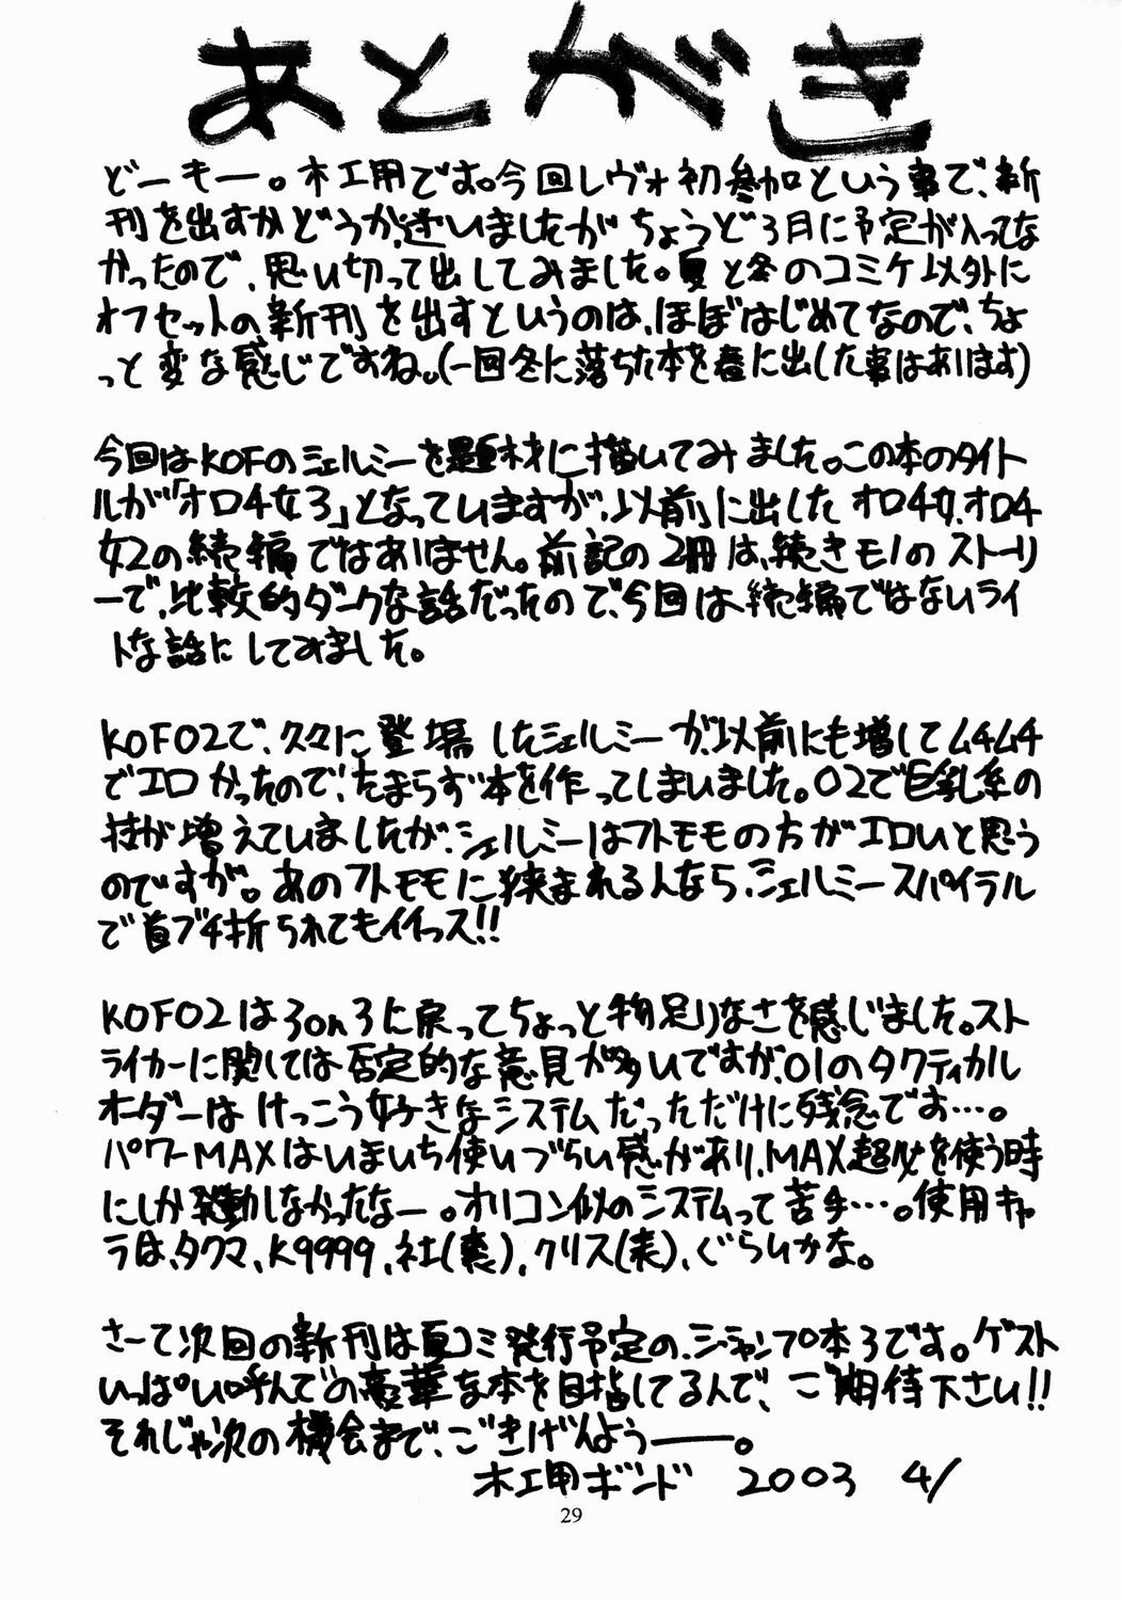 あとがき
どーもー。木工用です。今回レヴォ初参加という事で、新
刊を出すかどうか、迷いましたがちょうど3月に予定が入ってな
かったので、思い切って出してみました。夏と冬のコミケ以外に
オフセットの新刊を出すというのは、ほぼはじめてなので、ちょ
っと変な感じですね。(一回冬に落ちた本を春に出した事はあります)
今回はKOFのシェルミーを題材に描いてみました。この本のタイト
ルが「オロチ女3」となっていますが、以前に出したオロチ女、オロチ
女2の続編ではありません。前記の2冊は、続きモノのストーリ
ーで、比較的ダークな話だったので、今回は続編ではないライ
トな話にしてみました。
KOF02で、久々に登場したシェルミーが、以前にも増してムチムチ
でエロかったので、たまらず本を作ってしまいました。02で巨乳系の
技が増えていましたが、シェルミーはフトモモの方がエロいと思う
のですが。あのフトモモに挟まれる人なら、シェルミースパイラル
で首ブチ折られてもイイっス!!
KOF02は3on3に戻ってちょっと物足りなさを感じました。スト
ライカーに関しては否定的な意見が多いですが、01のタクティカル
オーダーはけっこう好きなシステムだっただけに残念でお…。
パワーMAXはいまいち使いづらい感があり、MAX超必を使う時
にしか発動しなかったなー。オリコン似のシステムって苦手…。使用キャ
ラは、タクマ、K9999、社(裏)、クリス(表)、ぐらいかな。
さーて次回の新刊は夏コミ発行予定の、ジャンプ本3です。ゲスト
いっぱい呼んでの豪華な本を目指してるんで、ご期待下さい!!
それじゃ次の機会まで、ごきげんよう――。
木工用ボンド 2003 4/
29